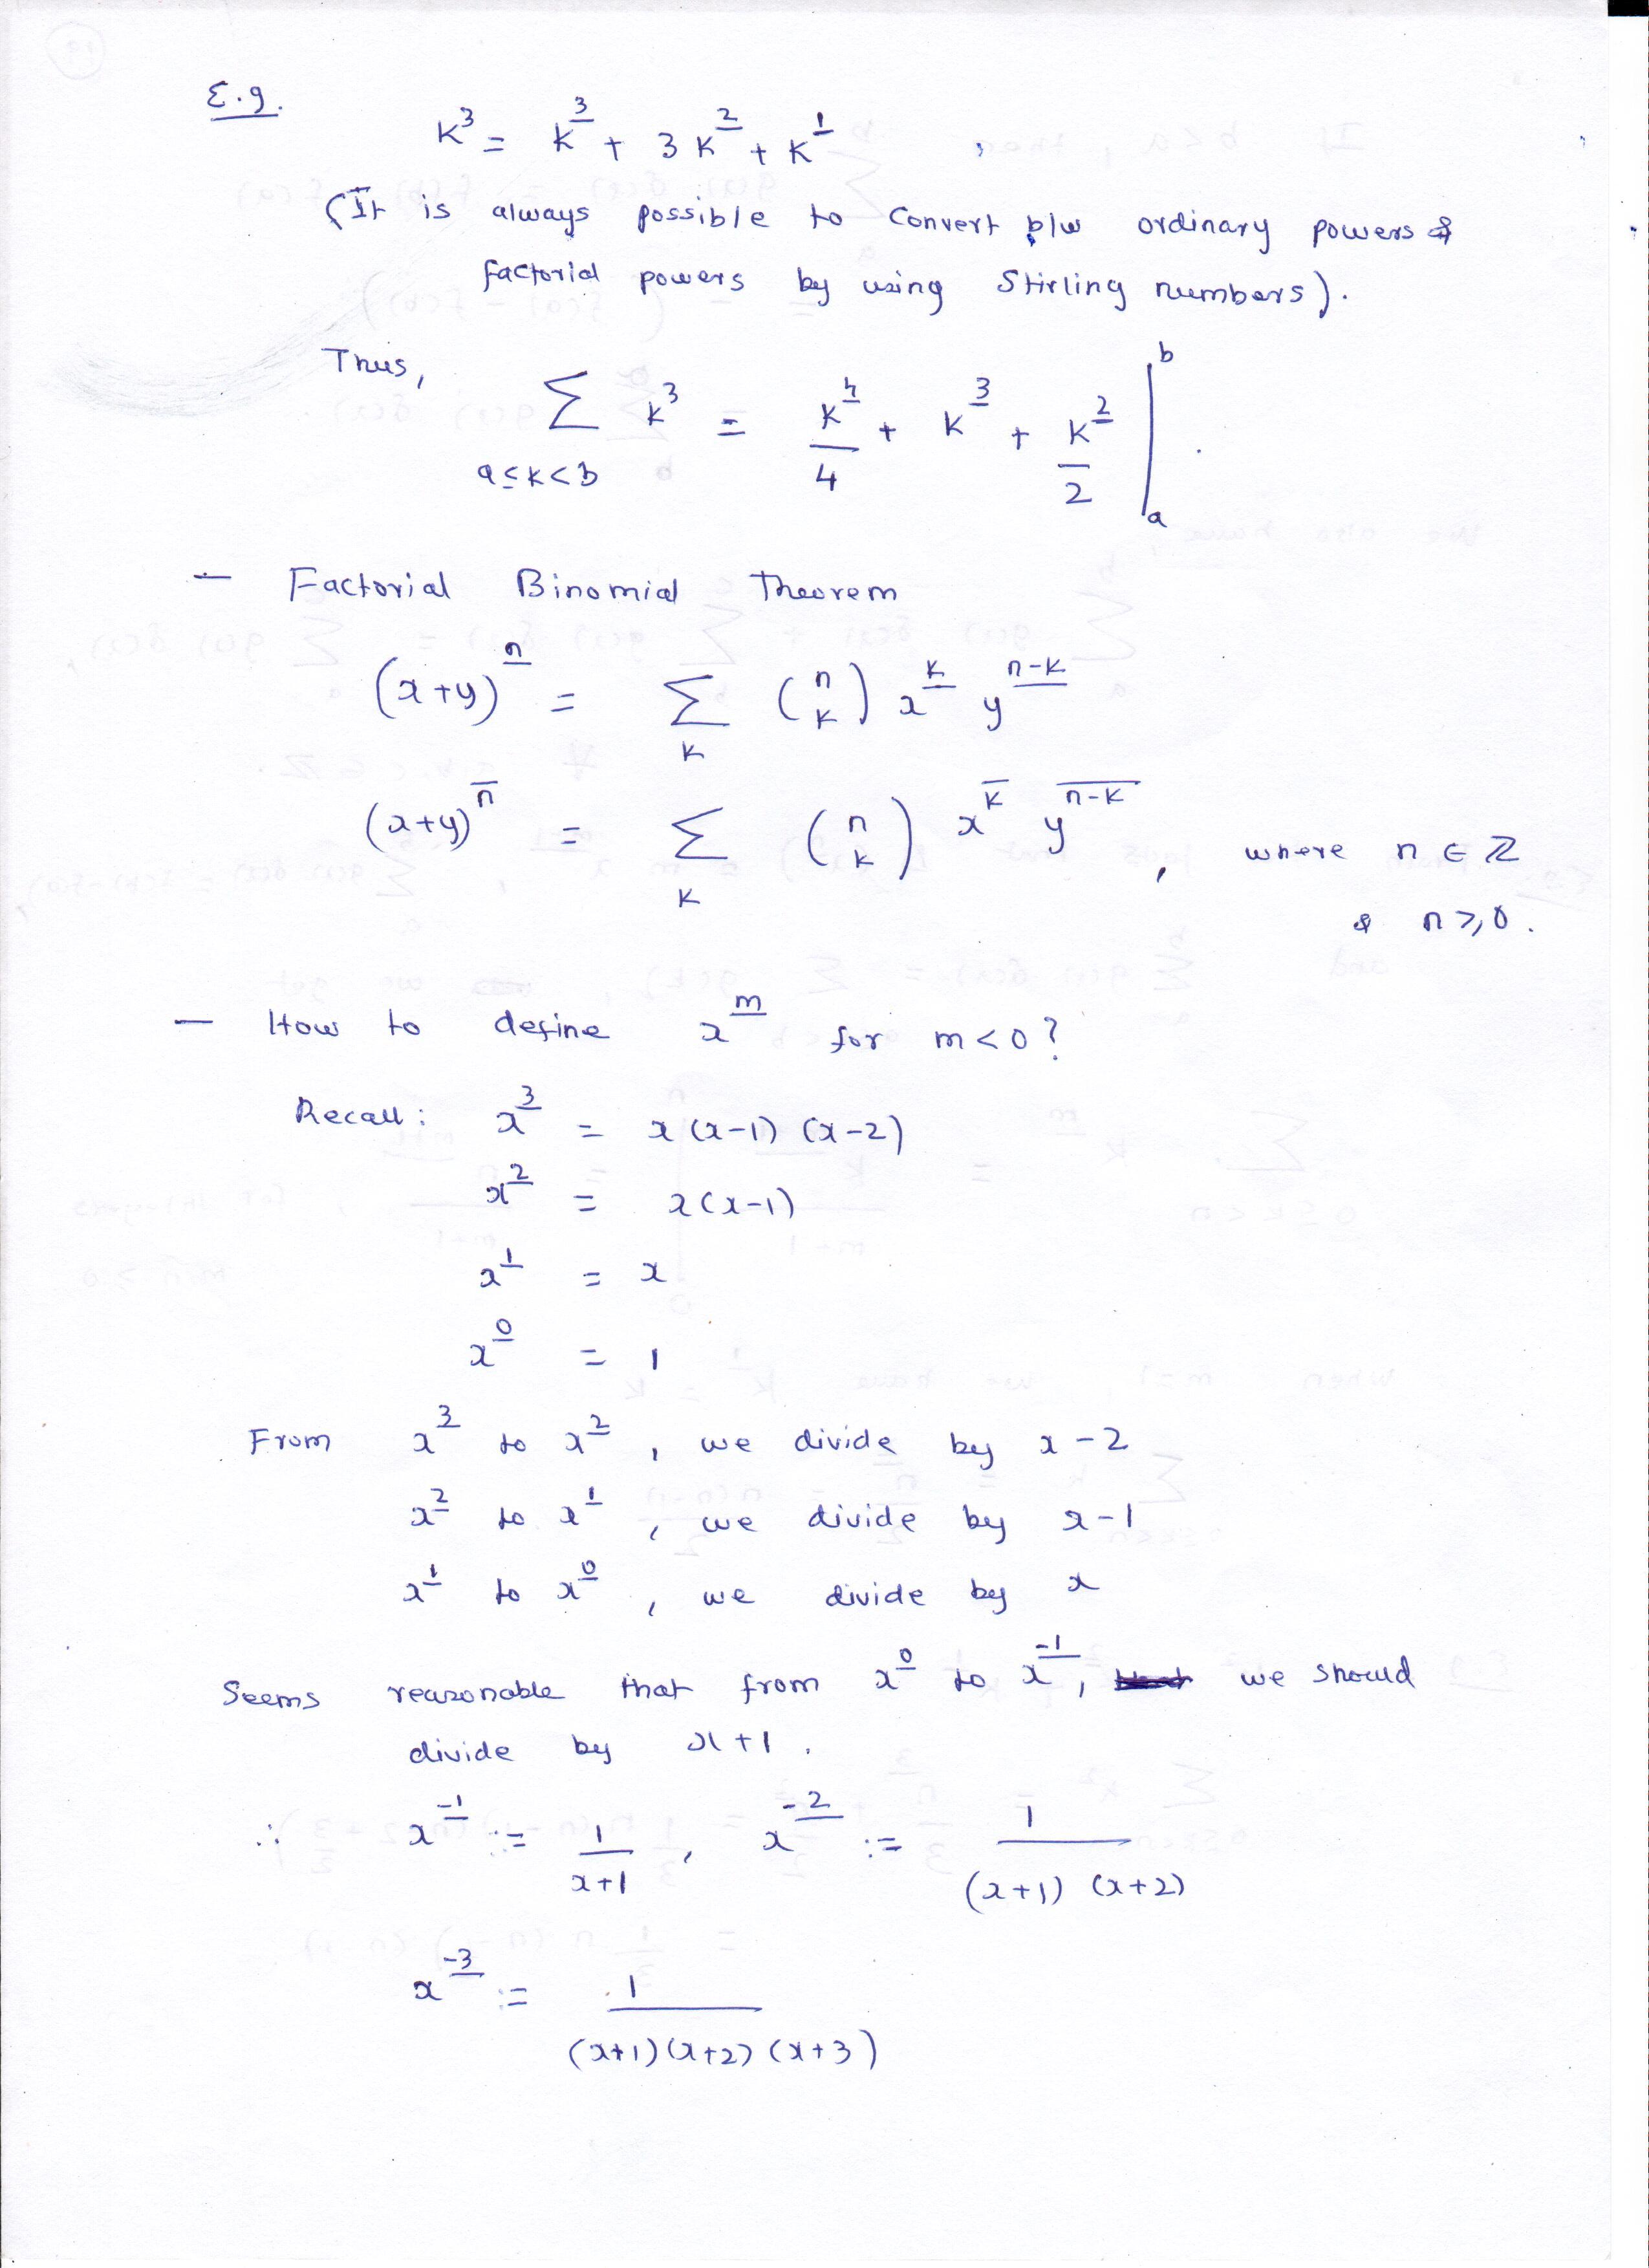 E.g.
$k^3 = k^{\underline{3}} + 3k^{\underline{2}} + k^{\underline{1}}$
(It is always possible to convert b/w ordinary powers &
factorial powers by using Stirling numbers).
Thus, $\sum_{a \le k < b} k^3 = \frac{k^{\underline{4}}}{4} + k^{\underline{3}} + \frac{k^{\underline{2}}}{2} \Big|_a^b$.
— Factorial Binomial Theorem
$(x+y)^{\underline{n}} = \sum_k \binom{n}{k} x^{\underline{k}} y^{\underline{n-k}}$
$(x+y)^{\overline{n}} = \sum_k \binom{n}{k} x^{\overline{k}} y^{\overline{n-k}}$, where $n \in \mathbb{Z}$
& $n \ge 0$.
— How to define $x^{\underline{m}}$ for $m < 0$?
Recall: $x^{\underline{3}} = x(x-1)(x-2)$
$x^{\underline{2}} = x(x-1)$
$x^{\underline{1}} = x$
$x^{\underline{0}} = 1$
From $x^{\underline{3}}$ to $x^{\underline{2}}$, we divide by $x-2$
$x^{\underline{2}}$ to $x^{\underline{1}}$, we divide by $x-1$
$x^{\underline{1}}$ to $x^{\underline{0}}$, we divide by $x$
Seems reasonable that from $x^{\underline{0}}$ to $x^{\underline{-1}}$, we should
divide by $x+1$.
∴ $x^{\underline{-1}} := \frac{1}{x+1}$, $x^{\underline{-2}} := \frac{1}{(x+1)(x+2)}$
$x^{\underline{-3}} := \frac{1}{(x+1)(x+2)(x+3)}$